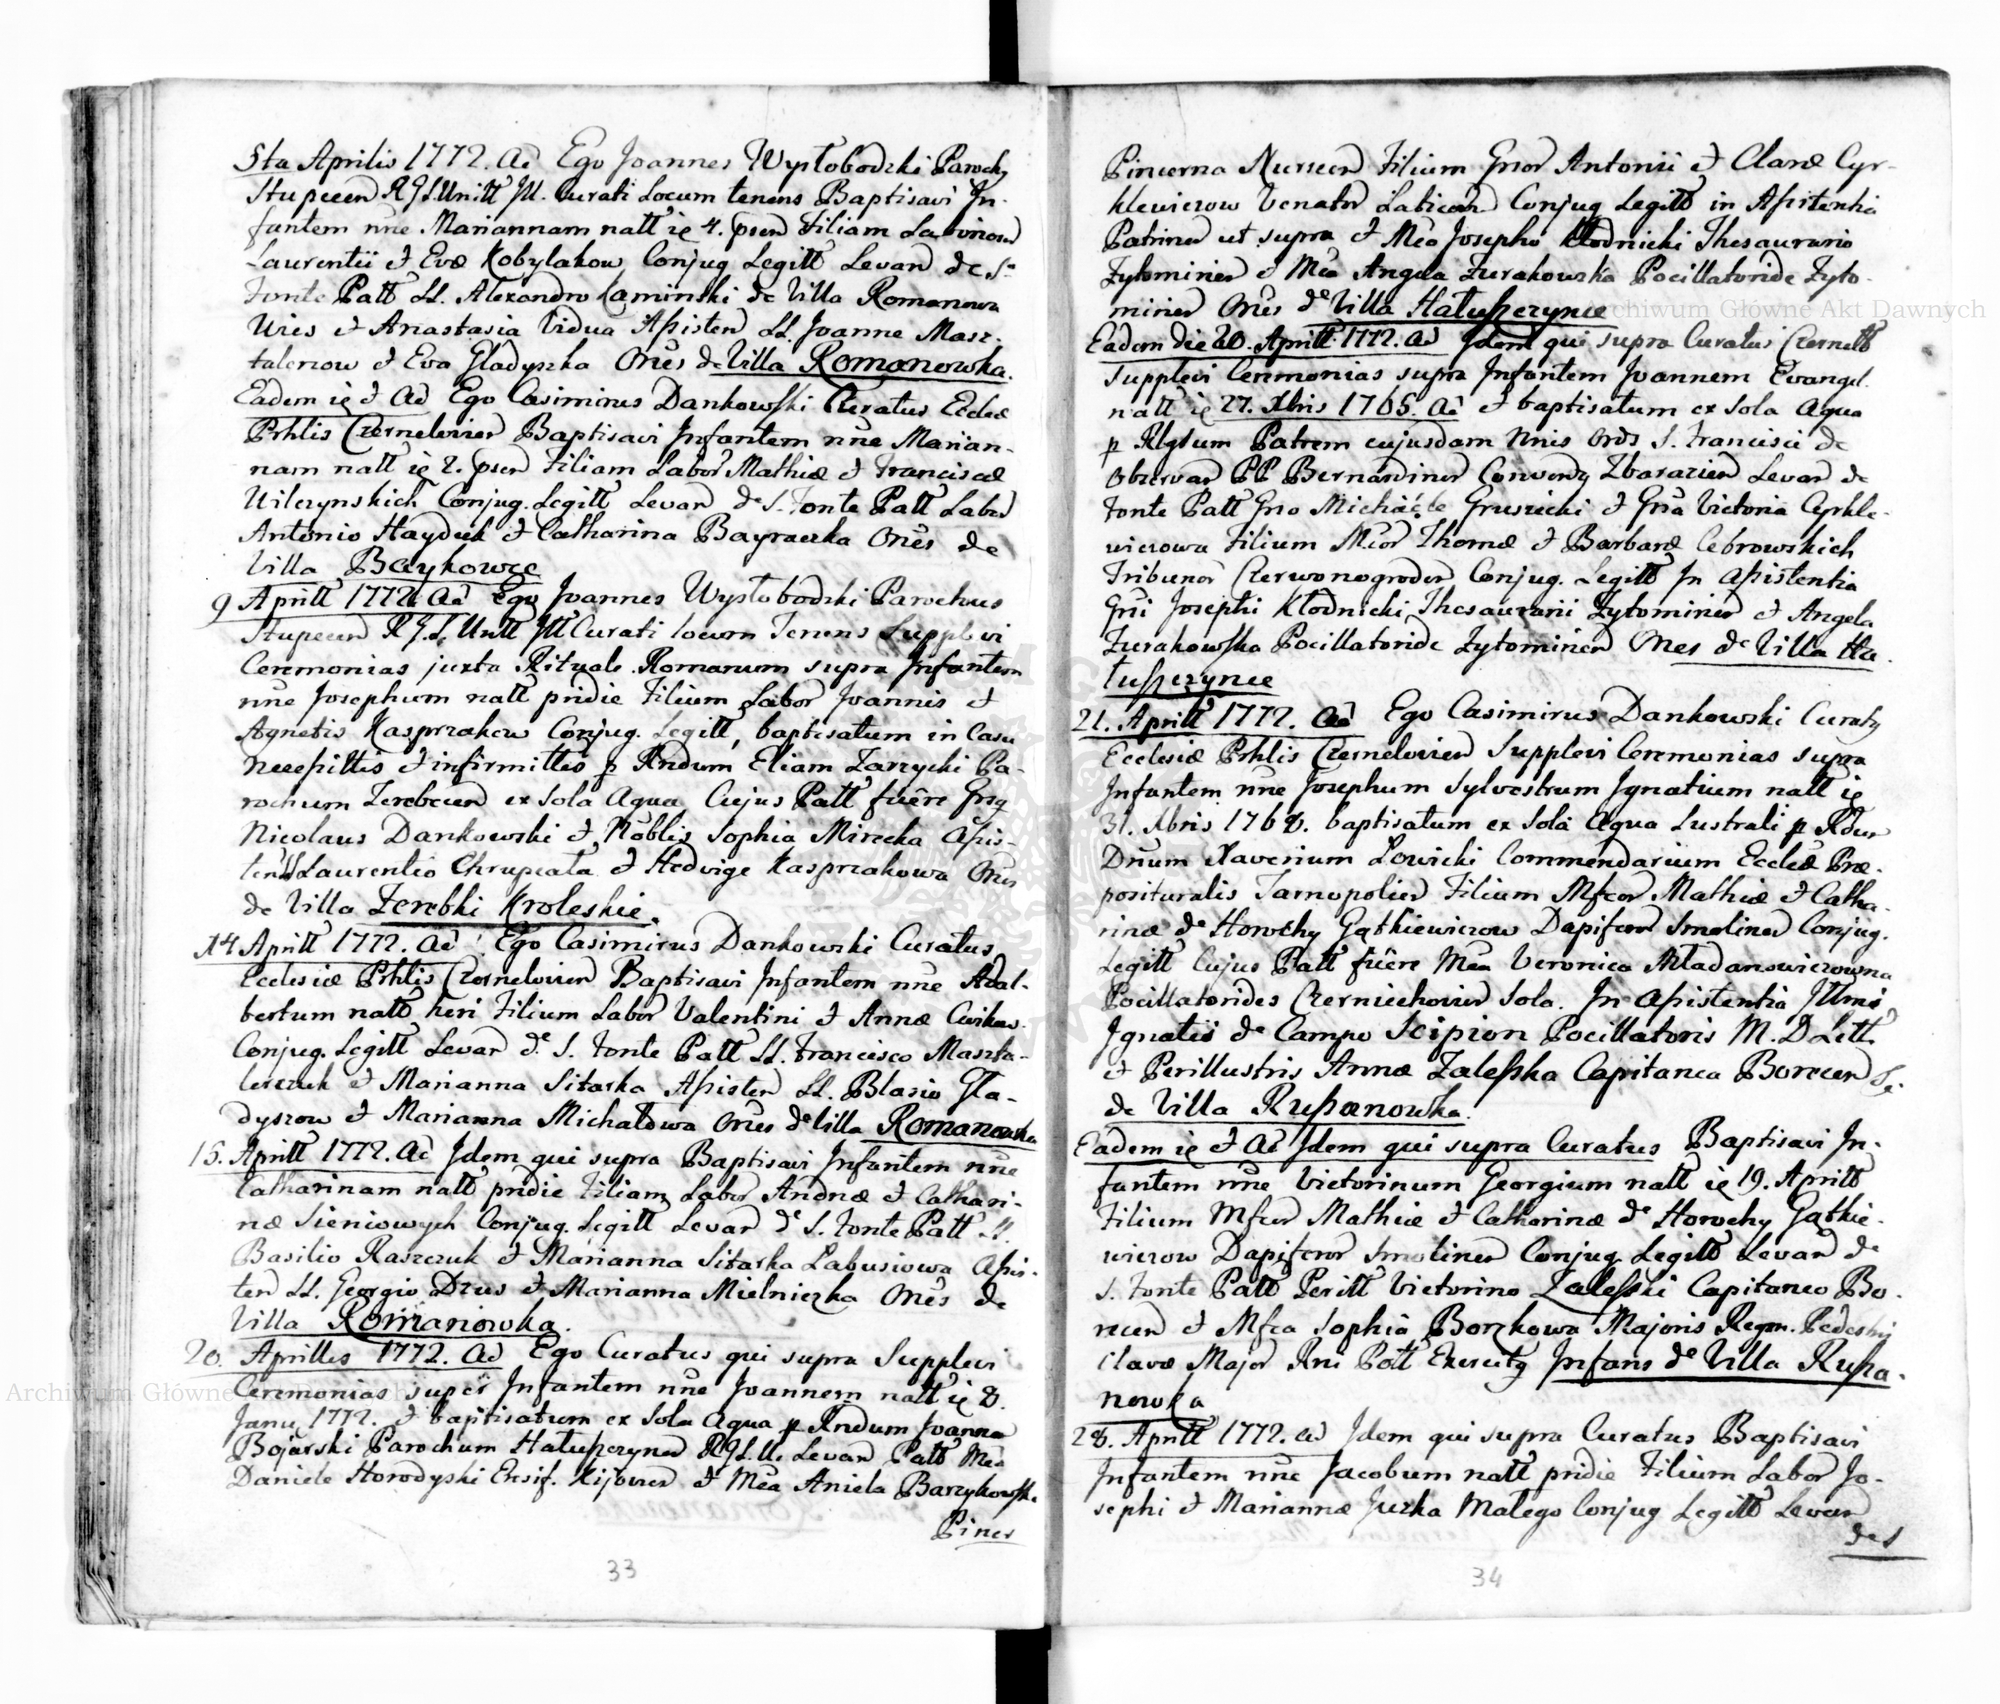 5ta Aprilis 1772. Ad Ego Joannes Wysłobodzki Paroch9
Stupecen R.G.S. Unitt Jll. Curati Locum tenens Baptisavi In-
fantem nne Mariannam natt ię 4. psen Filiam Laborioso
Laurentii et Evæ Kobylakow Conjug Legitt Levan de Sº
Fonte Patt LL. Alexandro Kaminski de Villa Romanowa
Vies et Anastasia Vidua Assisten LL. Joanne Masz-
talerzow et Eva Gladyszka Ones de Villa Romanowka.
Eadem ię et Ad Ego Casimirus Dankowski Curatus Eccleæ
Prhlis Czernelovien Baptisavi Infantem nne Marian-
nam natt ię 2. psen Filiam Labor Mathiæ et Franciscæ
Wilczynskich Conjug. Legitt Levan de S. Fonte Patt Labor
Antonio Hayduk et Catharina Bayraczka Ones de
Villa Baykowce
9 Aprill 1772 Ad Ego Joannes Wysłobodzki Parochus
Stupecen R.G.S. Unitt Jll Curati locum Tenens Supplevi
Ceremonias juxta Rituale Romanum supra Infantem
nne Josephum natt pridie Filium Labor Joannis et
Agnetis Kasprzakow Conjug. Legitt, baptisatum in Casu
Necessittis et infirmittis p Rndum Eliam Zarzycki Pa-
rochum Zerebcen ex sola Aqua Cujus Patt fuêre Grsq
Nicolaus Dankowski et Noblis Sophia Mirecka Assis-
ten LL Laurentio Chrupcata et Hedvige Kasprzakowa Ones
de Villa Zerebki Kroleskie.
14 Aprill 1772. Ad Ego Casimirus Dankowski Curatus
Ecclesiæ Prhlis Czernelovien Baptisavi Infantem nne Adal-
bertum natt heri Filium Labor Valentini et Annæ
Conjug. Legitt Levan de S. Fonte Patt LL. Francisco Maszta-
lerczuk et Marianna Sitarka Assisten LL. Blasio Gla-
dyszow et Marianna Michałowa Ones de Villa Romanowka
15. Aprill 1772. Ad Idem qui supra Baptisavi Infantem nne
Catharinam natt pridie Filiam Labor Andræ et Cathari-
næ Sieniowych Conjug. Legitt Levan de S. Fonte Patt LL.
Basilio Raszczuk et Marianna Sitarka Labusiowa Assis-
ten LL. Georgio Dzus et Marianna Mielniczka Ones de
Villa Romanowka.
20. Aprilles 1772. Ad Ego Curatus qui supra Supplevi
Ceremonias super Infantem nne Joannem natt ię 8.
Janu 1772. et baptisatum ex sola aqua p Rndum Joannem
Bojarski Parochum Hatuszczynen R.G.S.U. Levan Patt Mco
Daniele Horodyski Ensif. Kijovien et Mca Aniela Barzykowska
Pincr
33
Pincerna Nurscen Filium Grsor Antonii et Claræ Cyr-
klewiczow Venator Laticen Conjug Legitt in Assistentia
Patrinor ut supra et Mco Josepho Kłodnicki Thesaurario
Zytominien et Mca Angela Zurakowska Pocillatoride Zyto-
minien Ones de Villa Hatuszczynce
Eadem die 20. Aprill 1772. Ad Idem qui supra Curatus Czernell
Supplevi Ceremonias supra Infantem Joannem Evangel.
natt ię 27. Xbris 1765. Ad et baptisatum ex sola aqua
p Rlgsum Patrem cujusdam Nnis Ords S. Francisci de
Observan PP Bernardinor Conventq Zbarazien Levan de
Fonte Patt Grso Michaele Gruszecki et Grsa Victoria Cyrkle-
wiczowa Filium Mcor Thomæ et Barbaræ Cebrowskich
Tribunor Czerwonogroden Conjug. Legitt In Assistentia
Grsi Josephi Kłodnicki Thesaurarii Zytominien et Angela
Zurakowska Pocillatoride Zytominien Ones de Villa Ha-
tuszczynce
21. Aprill 1772. Ad Ego Casimirus Dankowski Curat9
Ecclesiæ Prhlis Czernelovien Supplevi Ceremonias supra
Infantem nne Josephum Sylvestrum Ignatium natt ię
31. Xbris 1768. baptisatum ex Sola Aqua Lustrali p Rdum
Dnum Xaverium Lowicki Commendarium Eccleæ Præ-
posituralis Tarnopolien Filium Mfcor Mathiæ et Catha-
rinæ de Horochy Gątkiewiczow Dapiferor Smolinen Conjug.
Legitt Cujus Patt fuêre Mca Veronica Mładanowiczowna
Pocillatorides Czerniechovien Sola. In Assistentia Jllmi
Ignatii de Campo Scipion Pocillatoris M. D Litt.
et Perillustris Annæ Zaleska Capitanea Borecen
de Villa Rusanowka.
Eadem ię et Ad Idem qui supra Curatus Baptisavi In-
fantem nne Victorinum Georgium natt ię 19. Aprill
Filium Mfcor Mathiæ et Catharinæ de Horochy Gątkie-
wiczow Dapiferor Smolinen Conjug. Legitt Levan de
S. Fonte Patt Perill Victorino Zaleski Capitaneo Bo-
recen et Mfca Sophia Borzkowa Majoris Regm. Pedestri
Clavæ Major Rni Poll Exercitq Infans de Villa Rusa-
nowka
28. Aprill 1772. Ad Idem qui supra Curatus Baptisavi
Infantem nne Jacobum natt pridie Filium Labor Jo-
sephi et Mariannæ Juzka Matego Conjug Legitt Levan
de S
34
Archiwum Główne Akt Dawnych